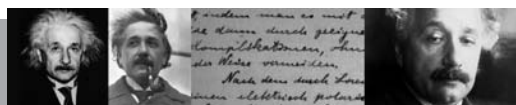 indem man es mit
se dann durch geeigne
Komplikationen, ohne
der Weise vermeiden
Nach dem durch Loren
einen elektrisch polaris